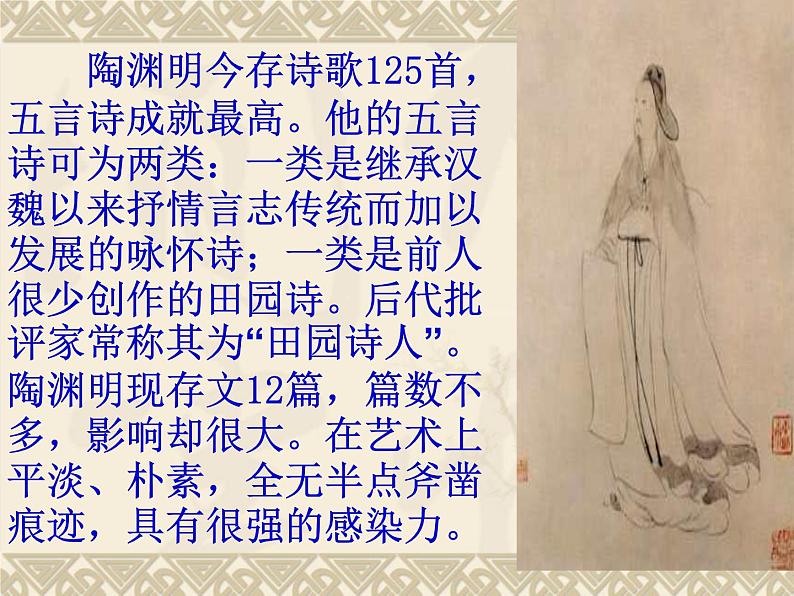 陶渊明今存诗歌125首，
五言诗成就最高。他的五言
诗可为两类：一类是继承汉
魏以来抒情言志传统而加以
发展的咏怀诗；一类是前人
很少创作的田园诗。后代批
评家常称其为“田园诗人”。
陶渊明现存文12篇，篇数不
多，影响却很大。在艺术上
平淡、朴素，全无半点斧凿
痕迹，具有很强的感染力。